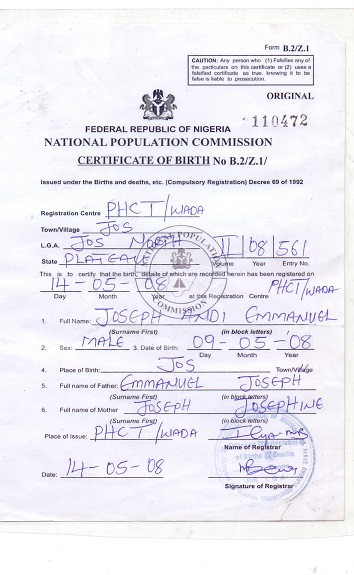 Form B.2/Z.1
CAUTION: Any person who (1) Falsifies any of
the particulars on this certificate or (2) uses a
falsified certificate as true. knowing it to be
false is liable to prosecution.
ORIGINAL
110472
FEDERAL REPUBLIC OF NIGERIA
NATIONAL POPULATION COMMISSION
CERTIFICATE OF BIRTH No B.2/Z.1/
Issued under the Births and deaths, etc. (Compulsory Registration) Decree 69 of 1992
Registration Centre PHCT/WADA
Town/Village JOS
L.G.A. JOS NORTH II 08 561
State PLATEAU Volume Year Entry No.
This is to certify that the birth, details of which are recorded herein has been registered on
14-05-'08 PHCT/WADA
Day Month Year at this Registration Centre
1. Full Name: JOSEPH EMMANUEL
(Surname First) (in block letters)
2. Sex: MALE 3. Date of Birth: 09-05-'08
Day Month Year
4. Place of Birth: JOS Town/Village
5. Full name of Father: EMMANUEL JOSEPH
(Surname First) (in block letters)
6. Full name of Mother JOSEPH JOSEPHINE
(Surname First) (in block letters)
Place of Issue: PHCT/WADA
Name of Registrar
Date: 14-05-08
Signature of Registrar